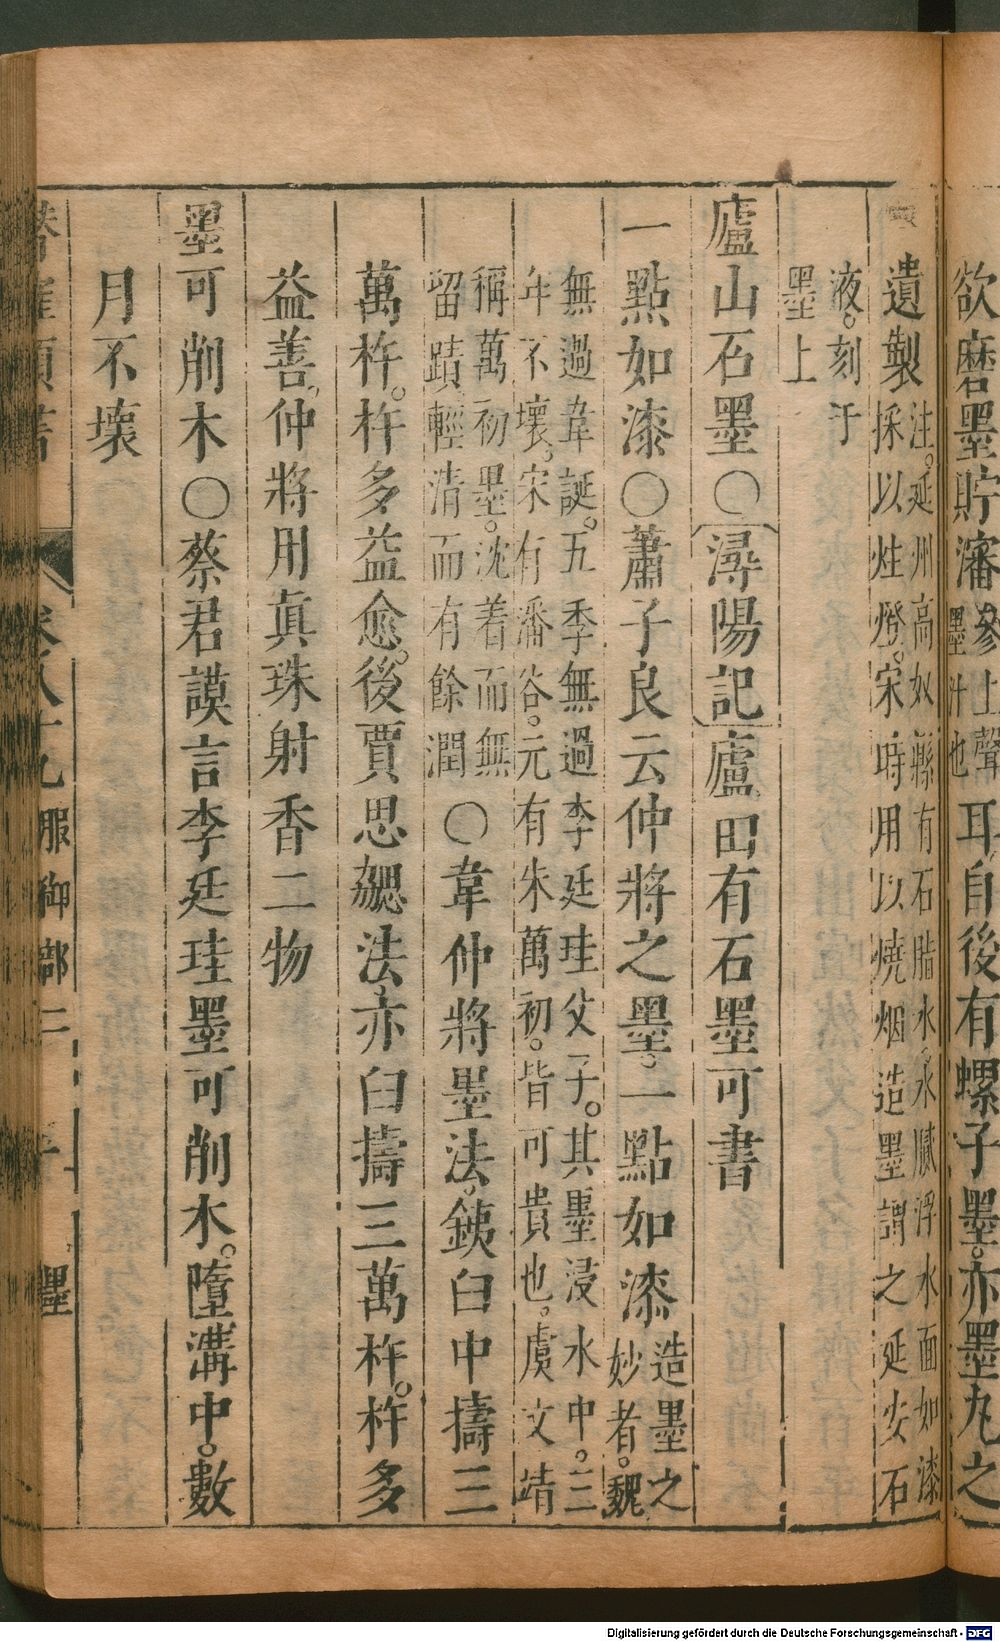 欲磨墨貯瀋參上聲墨汁也耳自後有螺子墨亦墨丸之
遺製注。延州高奴縣有石脂水水膩浮水面如漆採以炷燈。宋時用以燒烟造墨謂之延安石
液。刻于墨上
廬山石墨○潯陽記廬田有石墨可書
一點如漆○蕭子良云仲將之墨。一點如漆造墨之妙者。魏
無過韋誕。五季無過李廷珪父子。其墨浸水中。三年不壞。宋有潘谷。元有朱萬初。皆可貴也。虞文靖
稱萬初墨。沈着而無留蹟輕清而有餘潤○韋仲將墨法。銕臼中擣三
萬杵。杵多益愈。後賈思勰法亦臼擣三萬杵。杵多
益善仲將用真珠射香二物
墨可削木○蔡君謨言李廷珪墨可削木。墮溝中。數
月不壞
卷八十九 服御部二 墨
Digitalisierung gefördert durch die Deutsche Forschungsgemeinschaft - DFG